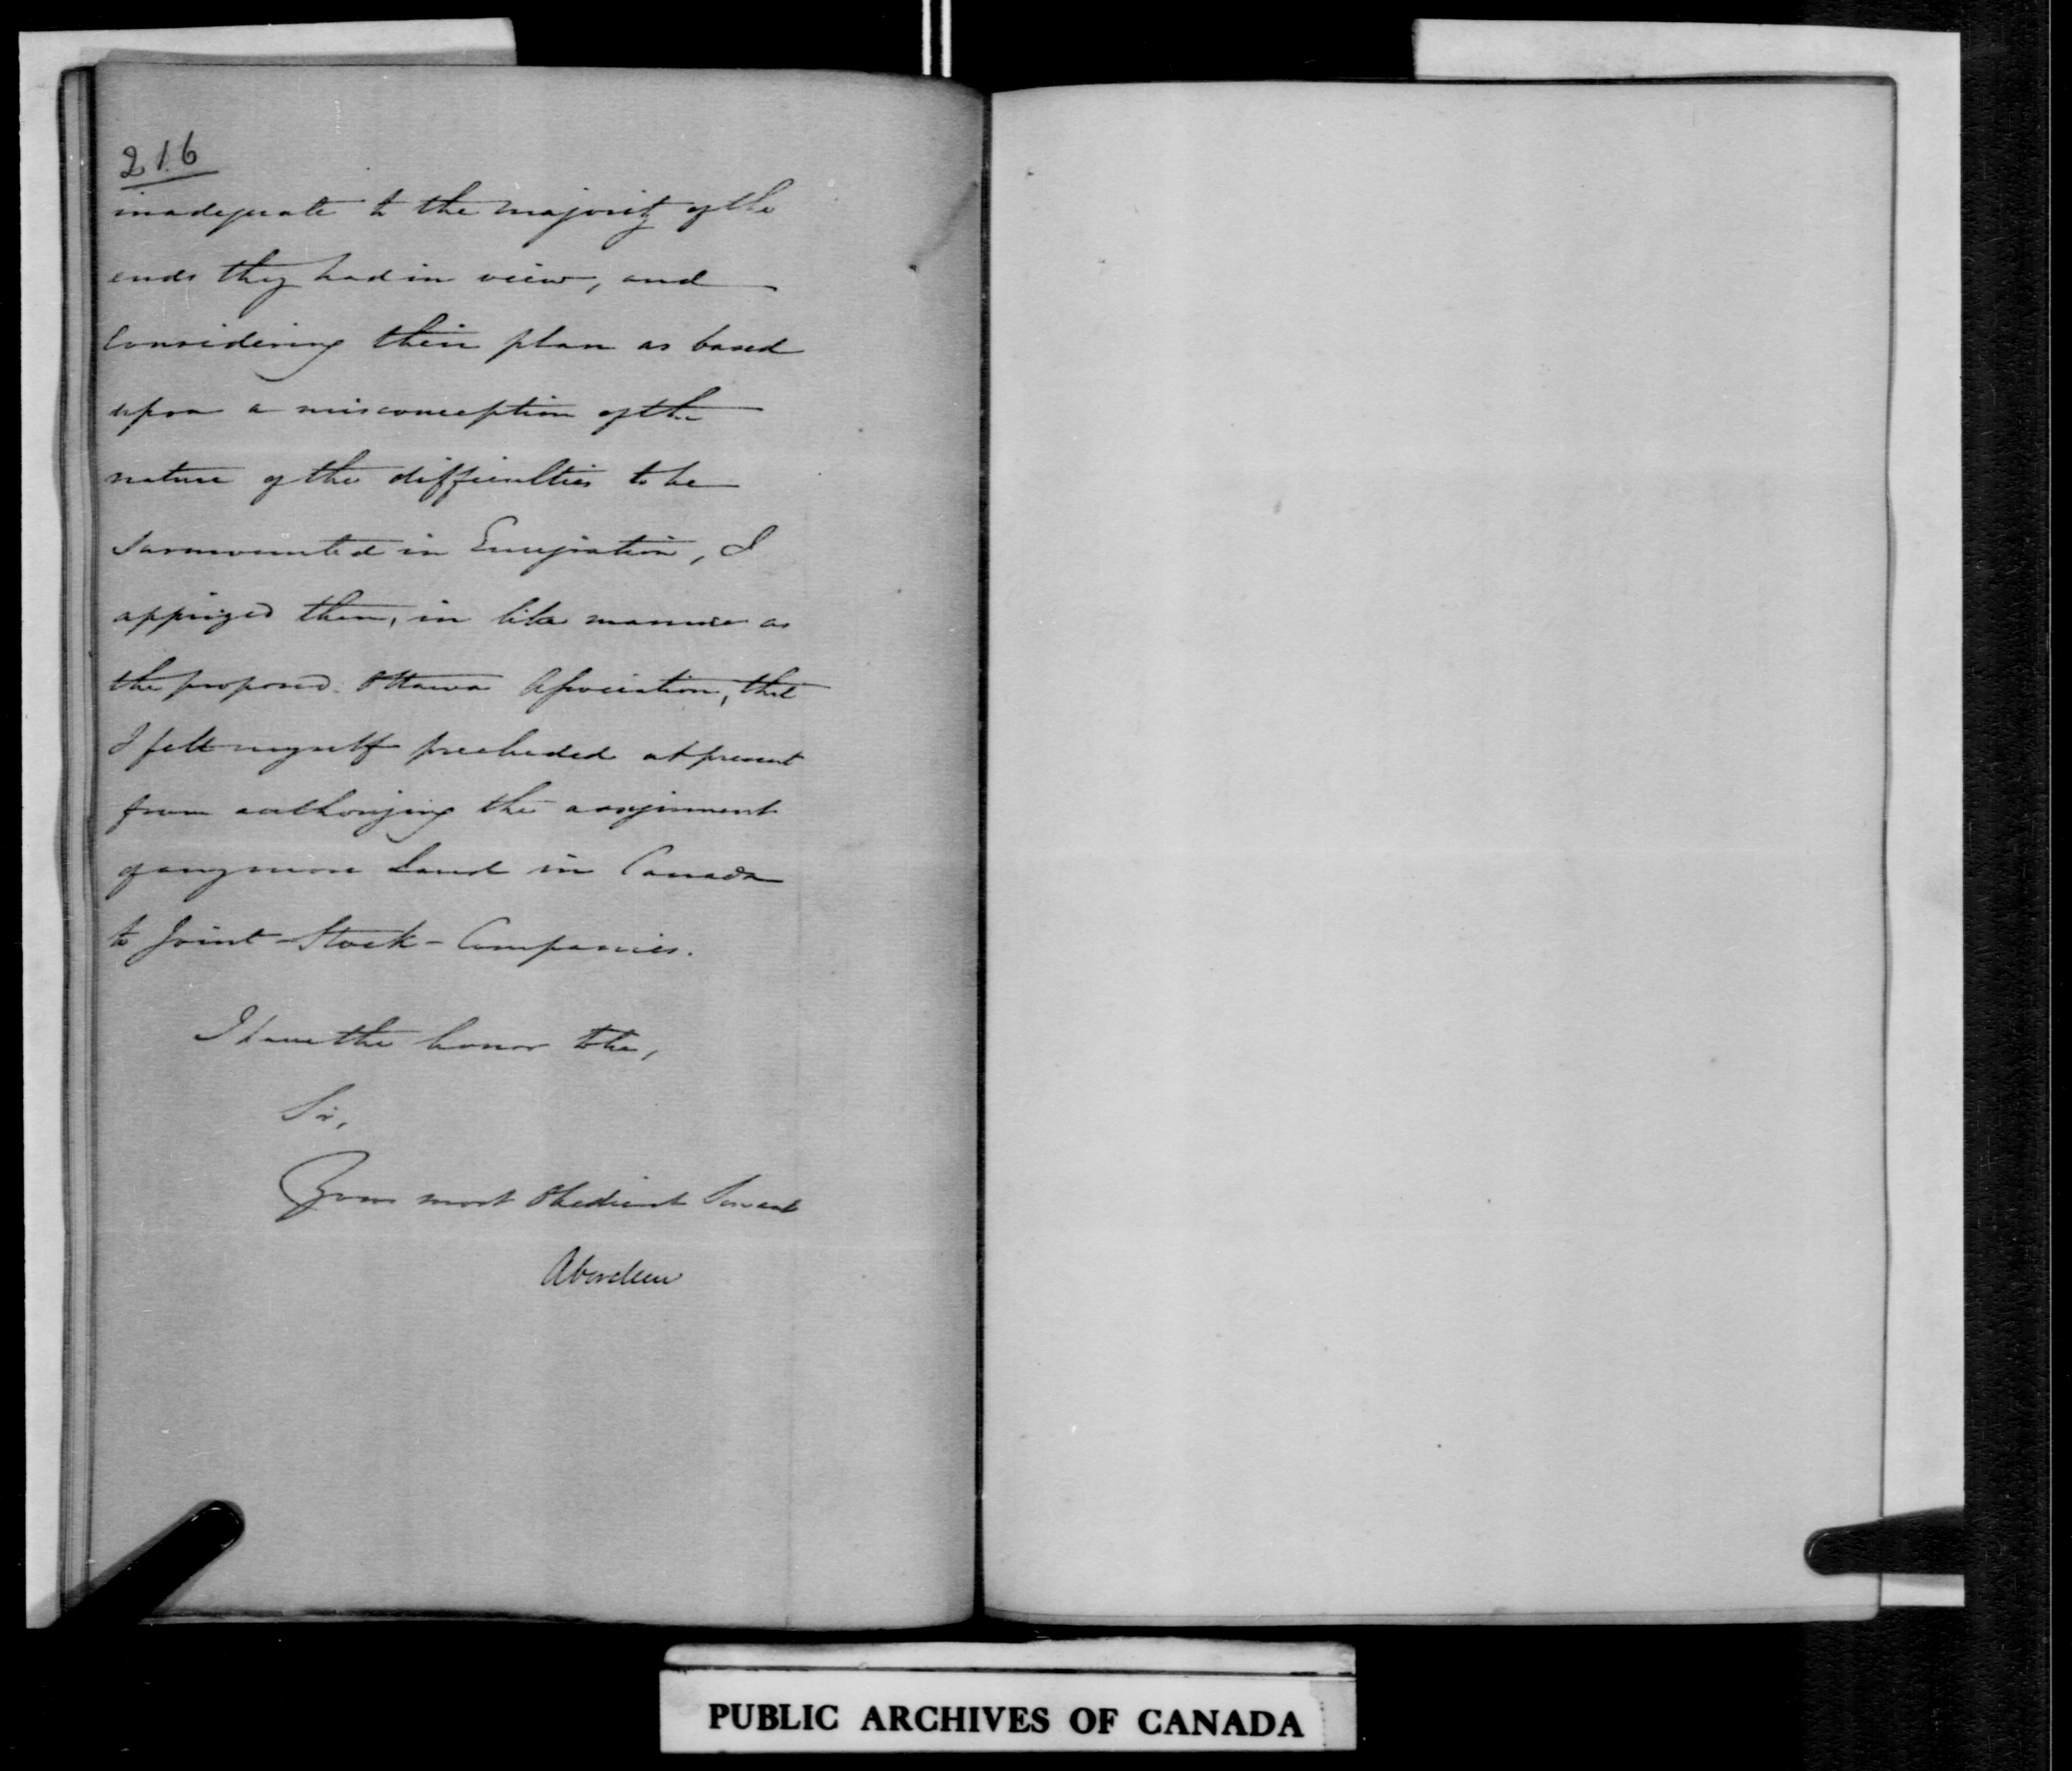 216
inadequate to the majority of the
ends they had in view, and
Considering their plan as based
upon a misconception of the
nature of the difficulties to be
surmounted in Emigration, I
apprized them, in like manner as
the proposed Ottawa Association, that
I felt myself precluded at present
from authorizing the assignment
of any more Land in Canada
to Joint-Stock-Companies.
I have the honor to be,
Sir,
Your most Obedient Servant
Aberdeen
PUBLIC ARCHIVES OF CANADA